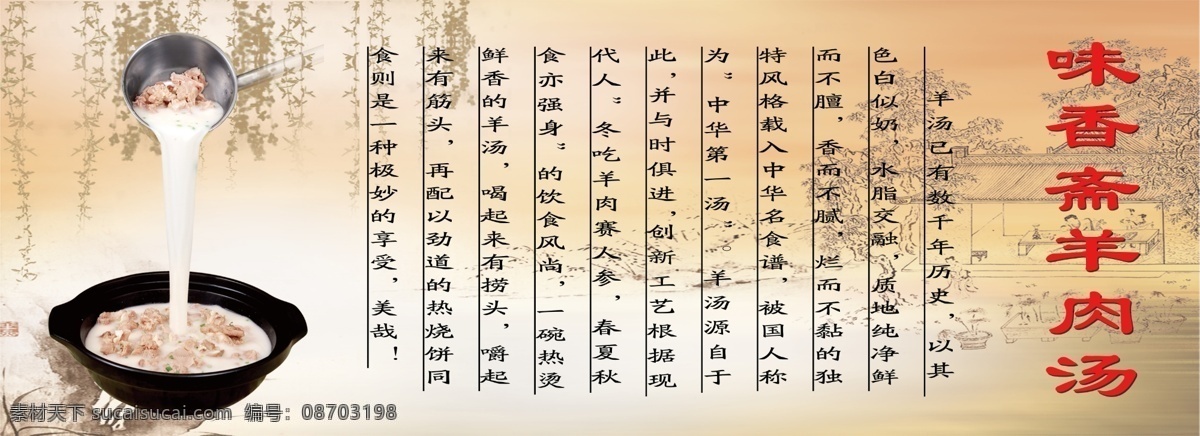 味香斋羊肉汤
羊汤已有数千年历史，以其
色白似奶，水脂交融，质地纯净鲜
而不膻，香而不腻，烂而不黏的独
特风格载入中华名食谱，被国人称
为“中华第一汤”。羊汤源自于
此，并与时俱进，创新工艺根据现
代人“冬吃羊肉赛人参，春夏秋
食亦强身”的饮食风尚，一碗热烫
鲜香的羊汤，喝起来有捞头，嚼起
来有筋头，再配以劲道的热烧饼同
食则是一种极妙的享受，美哉！
素材天下 sucaisucai.com 编号：08703198